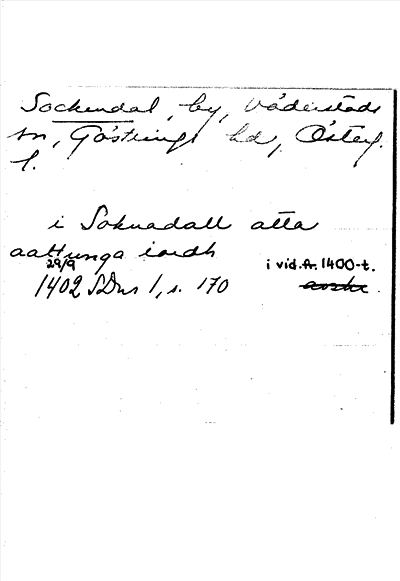 Sockendal, by, Väderstads
sn, Göstrings hd, Österg.
l.
i Soknadall atta
aattunga iordh
29/9
1402 SDns 1, s. 170
i vid. fr. 1400-t.
avskr.